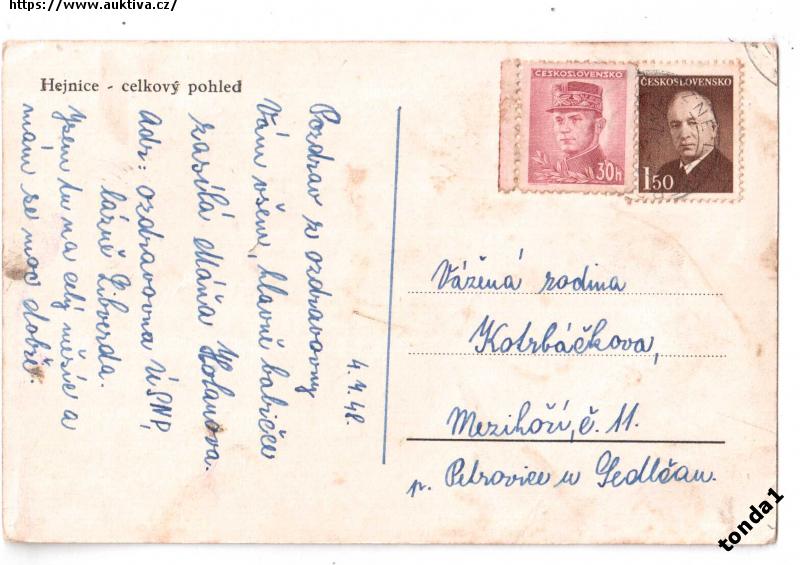 https://www.auktiva.cz/
Hejnice - celkový pohled
Pozdrav z ozdravovny
Vám všem, hlavně babičce
zasílá Máňa Holanova.
Adr: ozdravovna ÚSNP,
lázně Libverda.
Jsem tu na celý měsíc a
mám se moc dobře.
4.4.48.
ČESKOSLOVENSKO
30h
ČESKOSLOVENSKO
1,50
Vážená rodina
Kotrbáčkova,
Mezihoří, č. 11.
p. Petrovice u Sedlčan.
tonda1